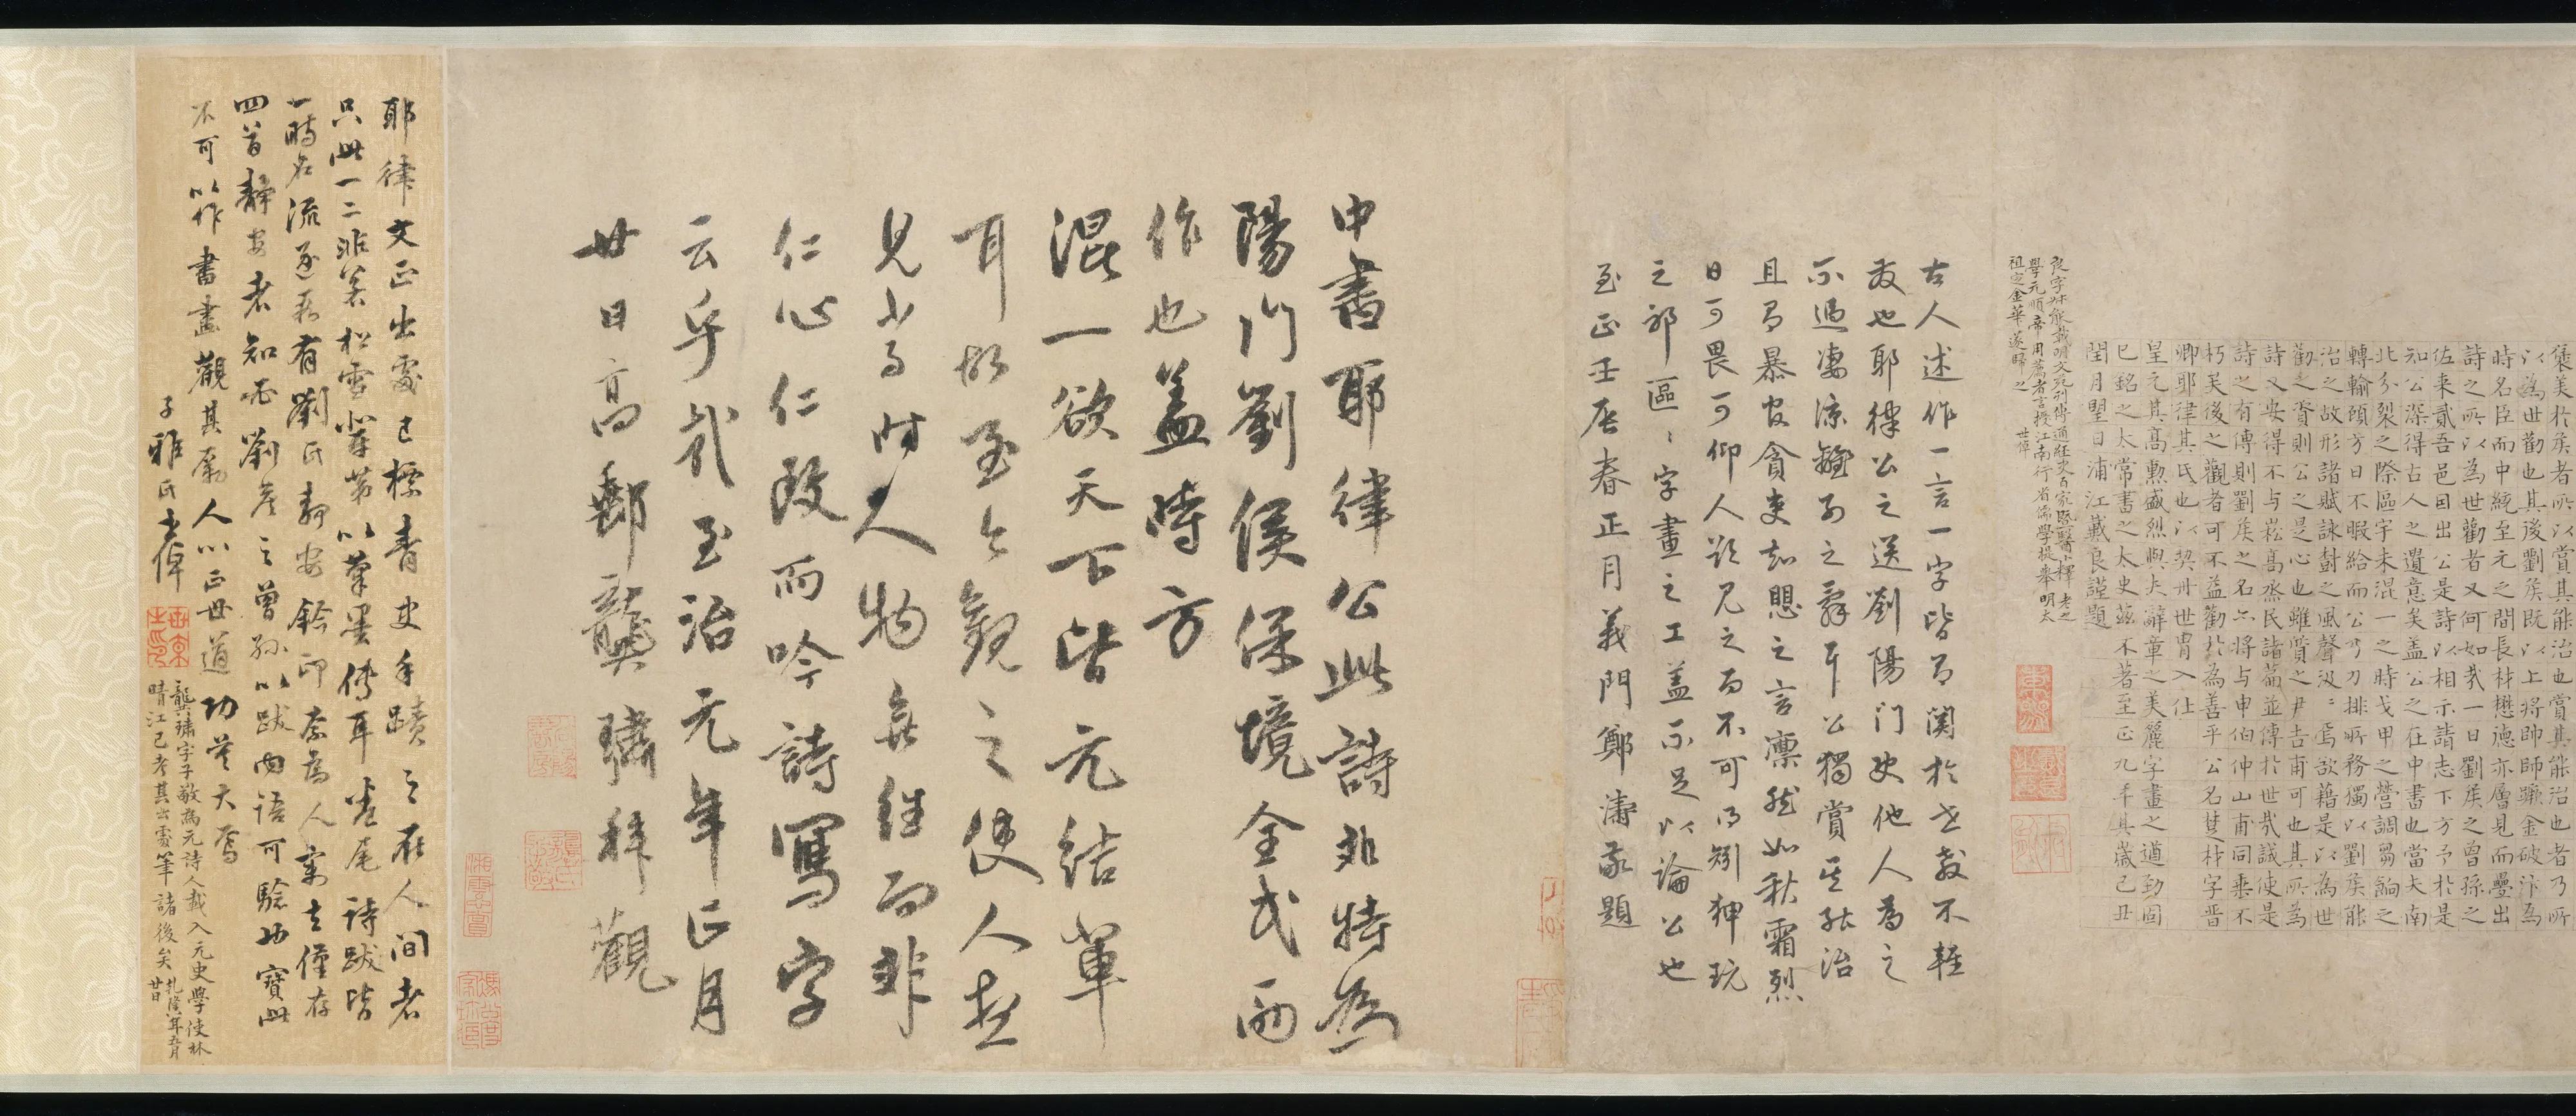 褒美於侯者所以賞其能治也賞其能治也者乃所
以為世勸也其後劉侯既以上將帥師踰金破汴為
時名臣而中統至元之間長材懋德亦層見而疊出
詩之所以為世勸者又何如哉一日劉侯之曾孫之
佐來貳吾邑因出公是詩以相示請志下方予於是
知公深得古人之遺意矣盖公之在中書也當大南
北分裂之際區宇未混一之時戈甲之營調芻餉之
轉輸頃方日不暇給而公乃刀排斨務獨以劉侯能
治之故形諸賦詠對之風聲汲〻焉故藉是以為世
勸之資則公之是心也雖質之尹吉甫可也其所為
詩又安得不与崧高烝民諸篇並傳於世哉誠使是
詩之有傳則劉侯之名亦將与申伯仲山甫同垂不
朽矣後之觀者可不益勸於為善乎公名楚材字晋
卿耶律其氏也以契丹世胄入仕
皇元其高勲盛烈與夫辭章之美麗字畫之遒勁固
已銘之太常書之太史茲不著至正九年其歲己丑
閏月朢日浦江戴良謹題
良字叔能載明文苑列傳通經史百家暨醫卜釋老之
學元順帝用薦者言授江南行省儒學提舉明太
祖定金華遂歸之 世倬
古人述作一言一字皆有関於世教不輕
發也耶律公之送劉陽门史他人為之
不過凄涼離別之辭耳公獨賞其能治
且有暴官貪吏知愳之言凛然如秋霜烈
日可畏可仰人欲見之而不可得矧狎玩
之邪區〻字畫之工盖不足以論公也
至正壬辰春正月義門鄭濤敬題
中書耶律公此詩非特為
陽门劉侯保境全武而
作也盖時方
混一欲天下皆元結軰
耳故至今觀之使人想
見当有時人物無徃而非
仁心仁政而吟詩寫字
云乎哉至治元年正月
廿日高郵龔璛拜觀
耶律文正出處已標青史手蹟之在人間者
只此一二非若松雪輩第以筆墨傳耳卷尾詩跋皆
一時名流逐段有劉氏靜安鈐印奈為人竊去僅存
四首靜安者知必劉彦之曾孫以跋内語可驗也寶此
不可以作書畫觀其屬人心正世道功莫大焉
子雅氏世倬
龔璛字子敬為元詩人載入元史學使林
晴江已考其出處筆諸後矣 乾隆八年五月
廿日